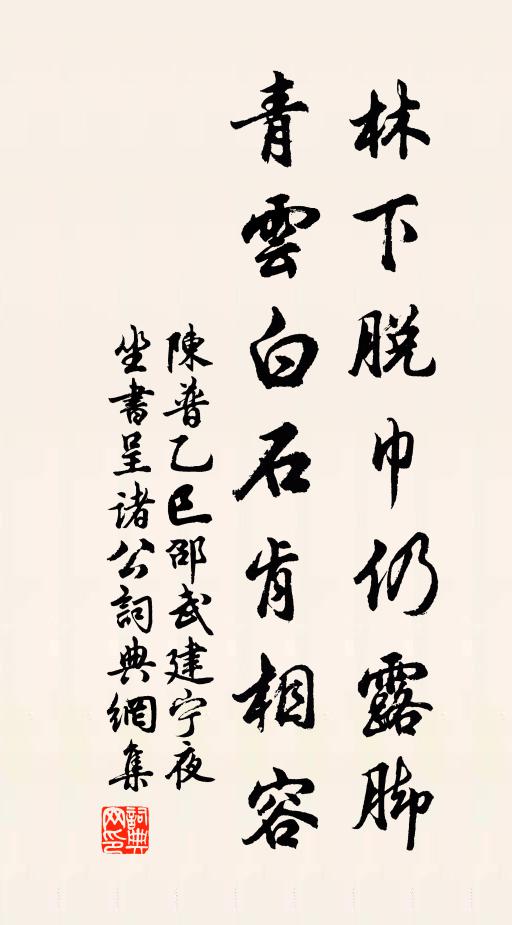 林下脱巾仍露脚
青雲白石肯相容
陳普乙巳邵武建宁夜
坐書呈诸公詞典網集
詞典網印